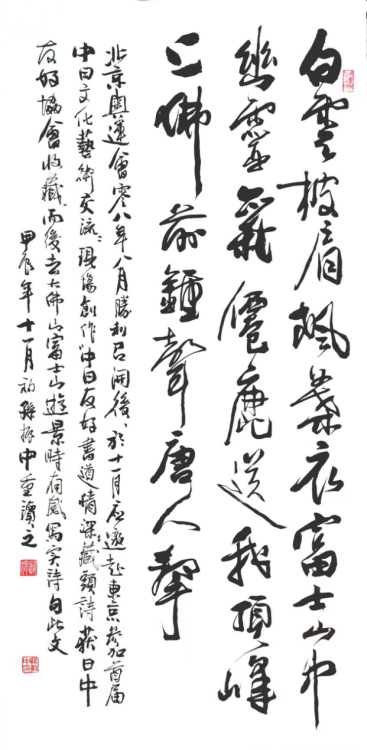 白雲披肩楓葉衣富士山中
幽靈僊鹿送我頂峰
上佛前鍾聲唐人擊
北京奧運會零八年八月勝利召開後，於十一月應邀赴東京參加首屆
中日文化藝術交流，現場創作“中日友好書道情深”藏頭詩獲日中
友好協會收藏，而後去大佛山富士山遊景時有感寫實詩句此文
甲辰年十一月初孫振中重讀之